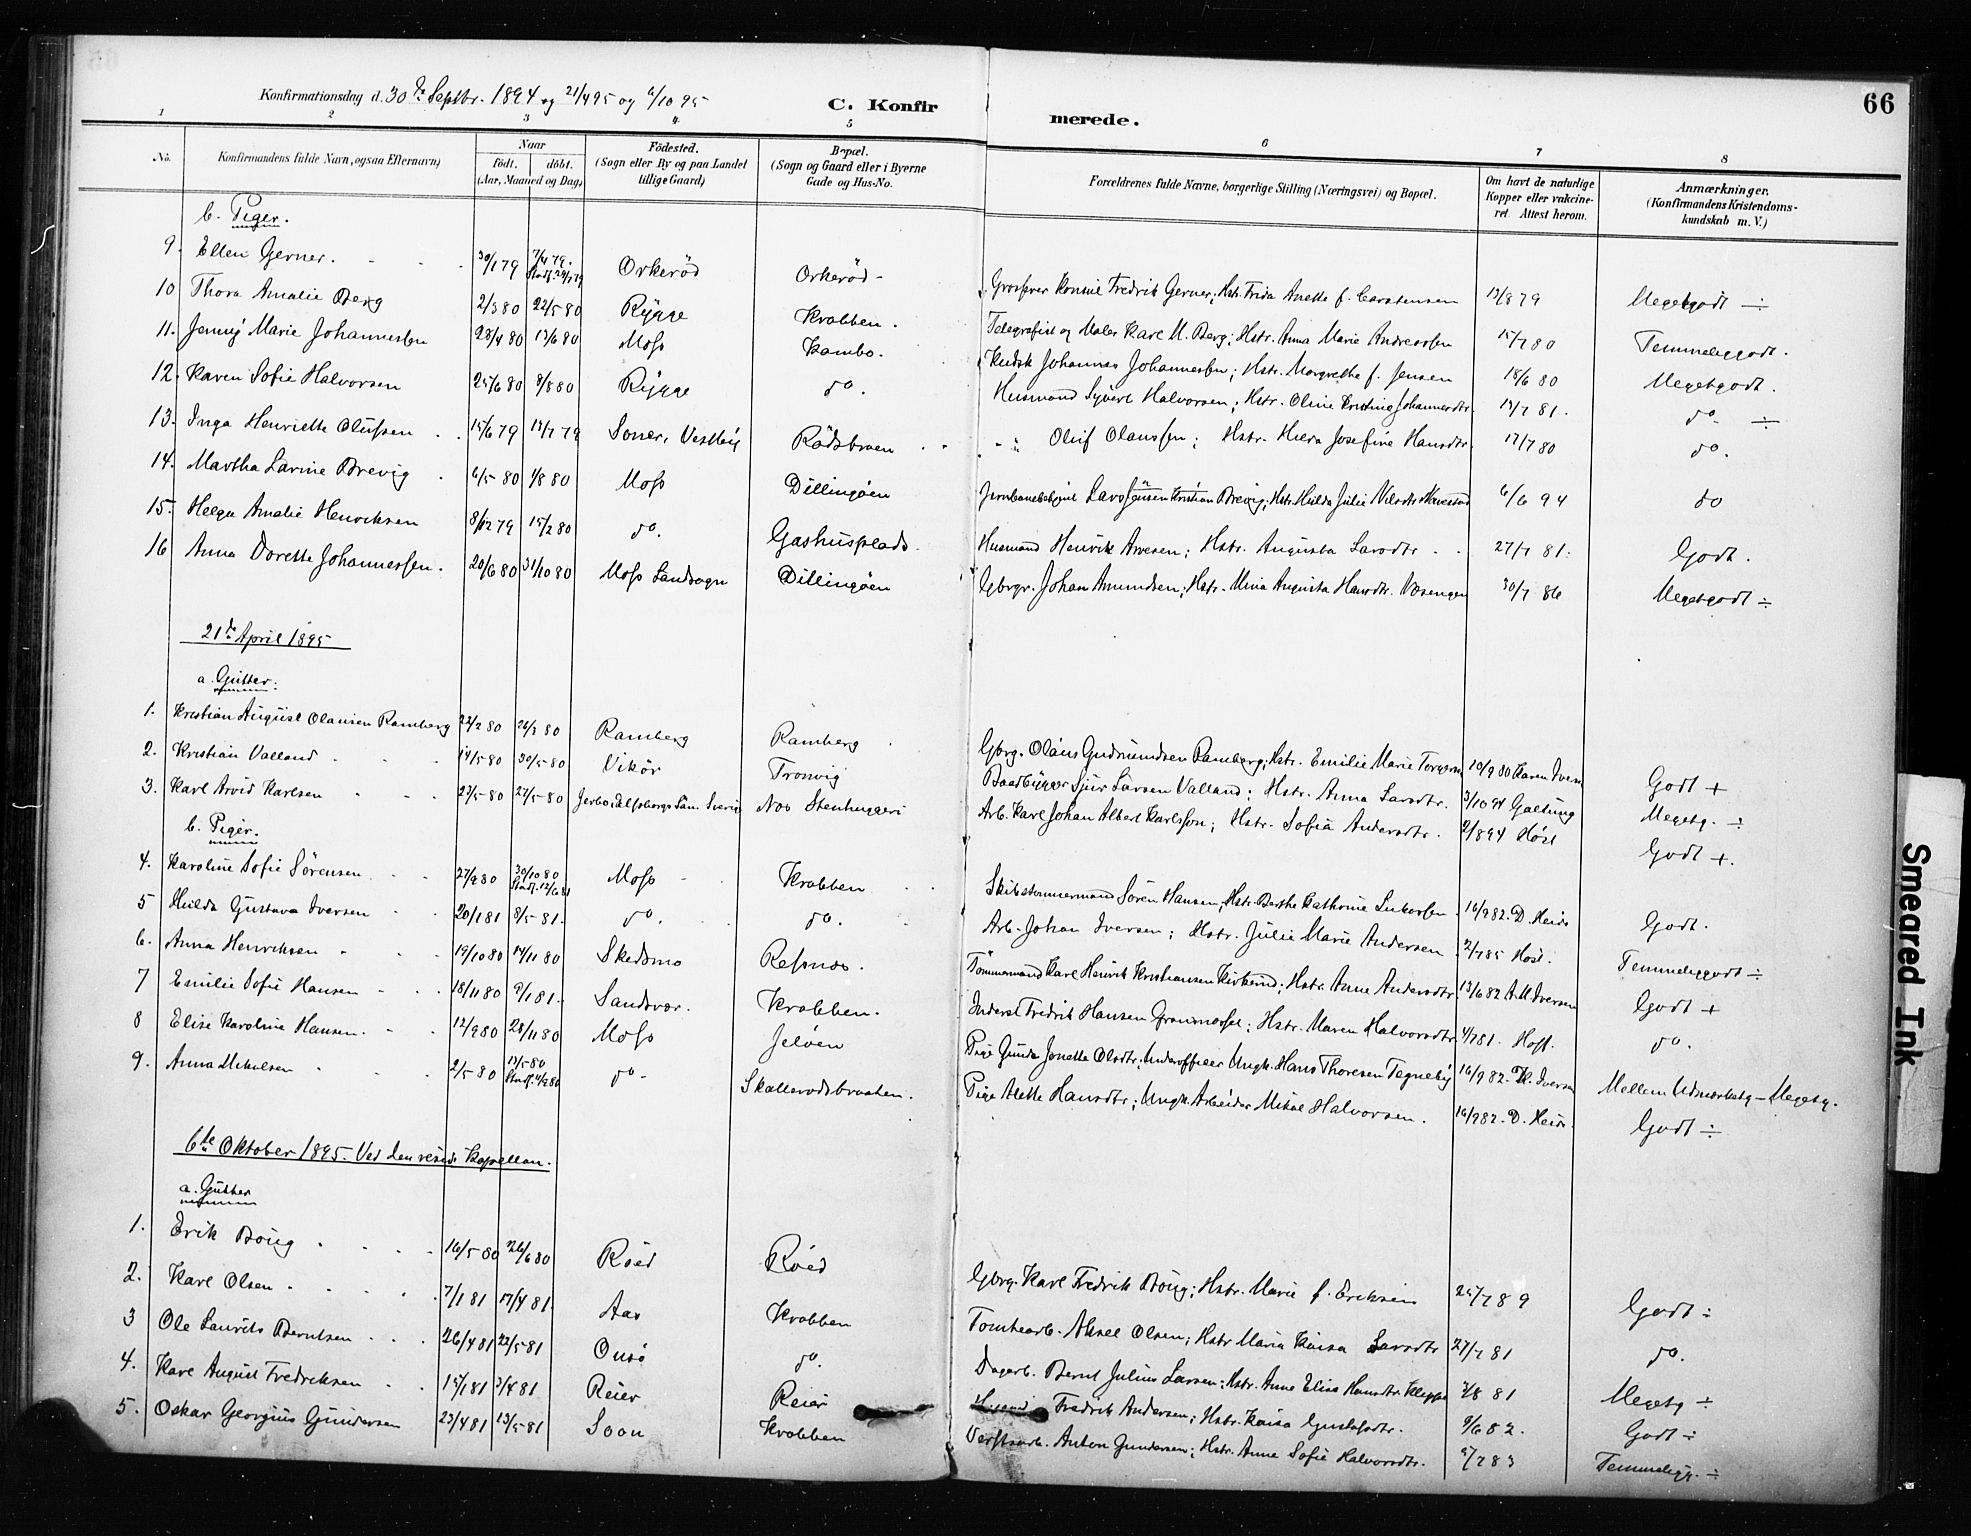 66
Konfirmationsdag d. 30te Septbr. 1894 og 21/4 95 og 6/10 95
C. Konfirmerede.
1 2 3 4 5 6 7 8
No. Konfirmandens fulde Navn, ogsaa Efternavn) Naar födt. döbt. (Aar, Maaned og Dag) Födested. (Sogn eller By og paa Landet tillige Gaard) Bopæl. (Sogn og Gaard eller i Byerne Gade og Hus-No. Forældrenes fulde Navne, borgerlige Stilling (Næringsvei) og Bopæl. Om havt de naturlige Kopper eller vakcineret. Attest herom. Anmærkninger. (Konfirmandens Kristendomskundskab m. V.)
b. Piger.
9. Ellen Gerner. 30/1 79 Orkeröd Orkeröd Grosserer Konsul Fredrik Gerner; Hstr. Frida Anette f. Carstensen 13/8 79 Megetgodt ÷
10 Thora Amalie Berg 2/3 80 22/5 80 Rygge Krabben. Telegrafist og Maler Karl M. Berg; Hstr. Anna Marie Andreassen 15/7 80 Temmeliggodt.
11. Jenny Marie Johannessen 28/4 80 13/6 80 Moss Kambo. Kudsk Johannes Johannessen; Hstr. Margrethe f. Jensen 18/6 80 Megetgodt.
12. Karen Sofie Halvorsen 25/6 80 8/8 80 Rygge do. Husmand Syvert Halvorsen; Hstr. Oline Kristine Johannesdtr. 13/7 81. do. ÷
13. Inga Henriette Olufsen 15/6 79 13/7 79 Soner, Vestby Rödsbraen Oluf Olaussen; Hstr. Hilda Josefine Hansdtr. 17/7 80 do.
14. Martha Larine Brevig 6/5 80 1/8 80 Moss Dillingöen Jernbanebetjent Lars Jensen Kristian Brevig; Hstr. Hulda Julie 6/6 94 do
15. Helga Amalie Henriksen 8/12 79 15/2 80 do. Gashusplads. Husmand Henrik Arvesen; Hstr. Augusta Larsdtr. 27/7 81. Godt.
16 Anna Dorette Johannessen. 20/6 80 31/10 80 Moss Landsogn Dillingöen Gbrgr. Johan Amundsen; Hstr. Mina Augusta Hansdtr. Væsengen 30/7 86 Megetgodt ÷
21de April 1895
a. Gutter.
1. Kristian August Olausen Ramberg 22/2 80 26/3 80 Ramberg Ramberg Gbrg. Olaus Gudmundsen Ramberg; Hstr. Emilie Marie 10/9 80 Karen Iversen Godt +
2. Kristian Valland 14/5 80 30/5 80 Vikör Tronvig Baadbygger Sjur Larsen Valland; Hstr. Anna Larsdtr. 3/10 94 Galtung Megetg. ÷
3. Karl Arvid Karlsen 27/5 80 27/5 80 Jerbo, Elfsborgs Län, Sverig Nos Stenhuggeri Arb. Karl Johan Albert Karlsson; Hstr. Sofia Andersdtr. 2/8 94 Höst Godt +.
b. Piger.
4. Karoline Sofie Sörensen 27/9 80 30/10 80 Moss Krabben Skibstömmermand Sören Hansen; Hstr. Berthe Kathrine 16/9 82. D. Heide Godt.
5 Hulda Gustava Iversen 20/1 81 8/5 81. do. do. Arb. Johan Iversen; Hstr. Julie Marie Andersen 2/7 85 Höst. Temmeliggodt ÷
6. Anna Henriksen 19/10 80 14/11 80 Skedsmo Refsnæs. Tömmermand Karl Henrik Kristiansen Kirkerud; Hstr. Anne Andersdtr. 13/6 82 A.M. Iversen Godt +
7 Emilie Sofie Hansen 18/11 80 9/1 81. Sandsvær. Krabben. Inderst Fredrik Hansen; Hstr. Maren Halvorsdtr. 4/7 81. Hoft. do.
8 Elise Karoline Hansen. 12/9 80 28/11 80 Moss Jelöen Pige Gunda Jonette Olsdtr; Underofficer Ungk. Hans Thoresen Tegneby 16/9 82. K. Iversen Mellem Udmærketg - Megetg.
9. Anna Mikalsen 2/5 80 13/5 80 do. Skallerödsbraaten. Pige Alette Hansdtr; Ungk. Arbeider Mikal Halvorsen. 16/9 82. D. Heide. Godt ÷
6te Oktober 1895. Ved den resid. Kapellan.
a. Gutter
1. Erik Boug 16/5 80 26/6 80 Röed Röed Gbrg. Karl Fredrik Boug; Hstr. Marie f. Eriksen 25/7 89 Godt ÷
2. Karl Olsen 7/1 81 17/4 81. Aas Krabben Tomtearb. Aksel Olsen; Hstr. Maria Kaisa Larsdtr 27/7 81 do.
3 Ole Laurits Berntsen 26/4 81 22/5 81 Onsö do. Dagarb. Bernt Julius Larsen; Hstr. Anne Elise Hansdtr. Kleppe 7/8 81 Megetg ÷
4. Karl August Fredriksen 15/1 81 3/4 81 Reier Reier Fredrik Andersen; Hstr. Kaisa Gustafsdtr. 9/6 82. Godt ÷
5. Oskar Georgius Gundersen 23/4 81 13/5 81 Soon Krabben Verkstarb. Anton Gundersen; Hstr. Anne Sofie Halvorsdtr. Temmeligg. ÷
Smeared Ink